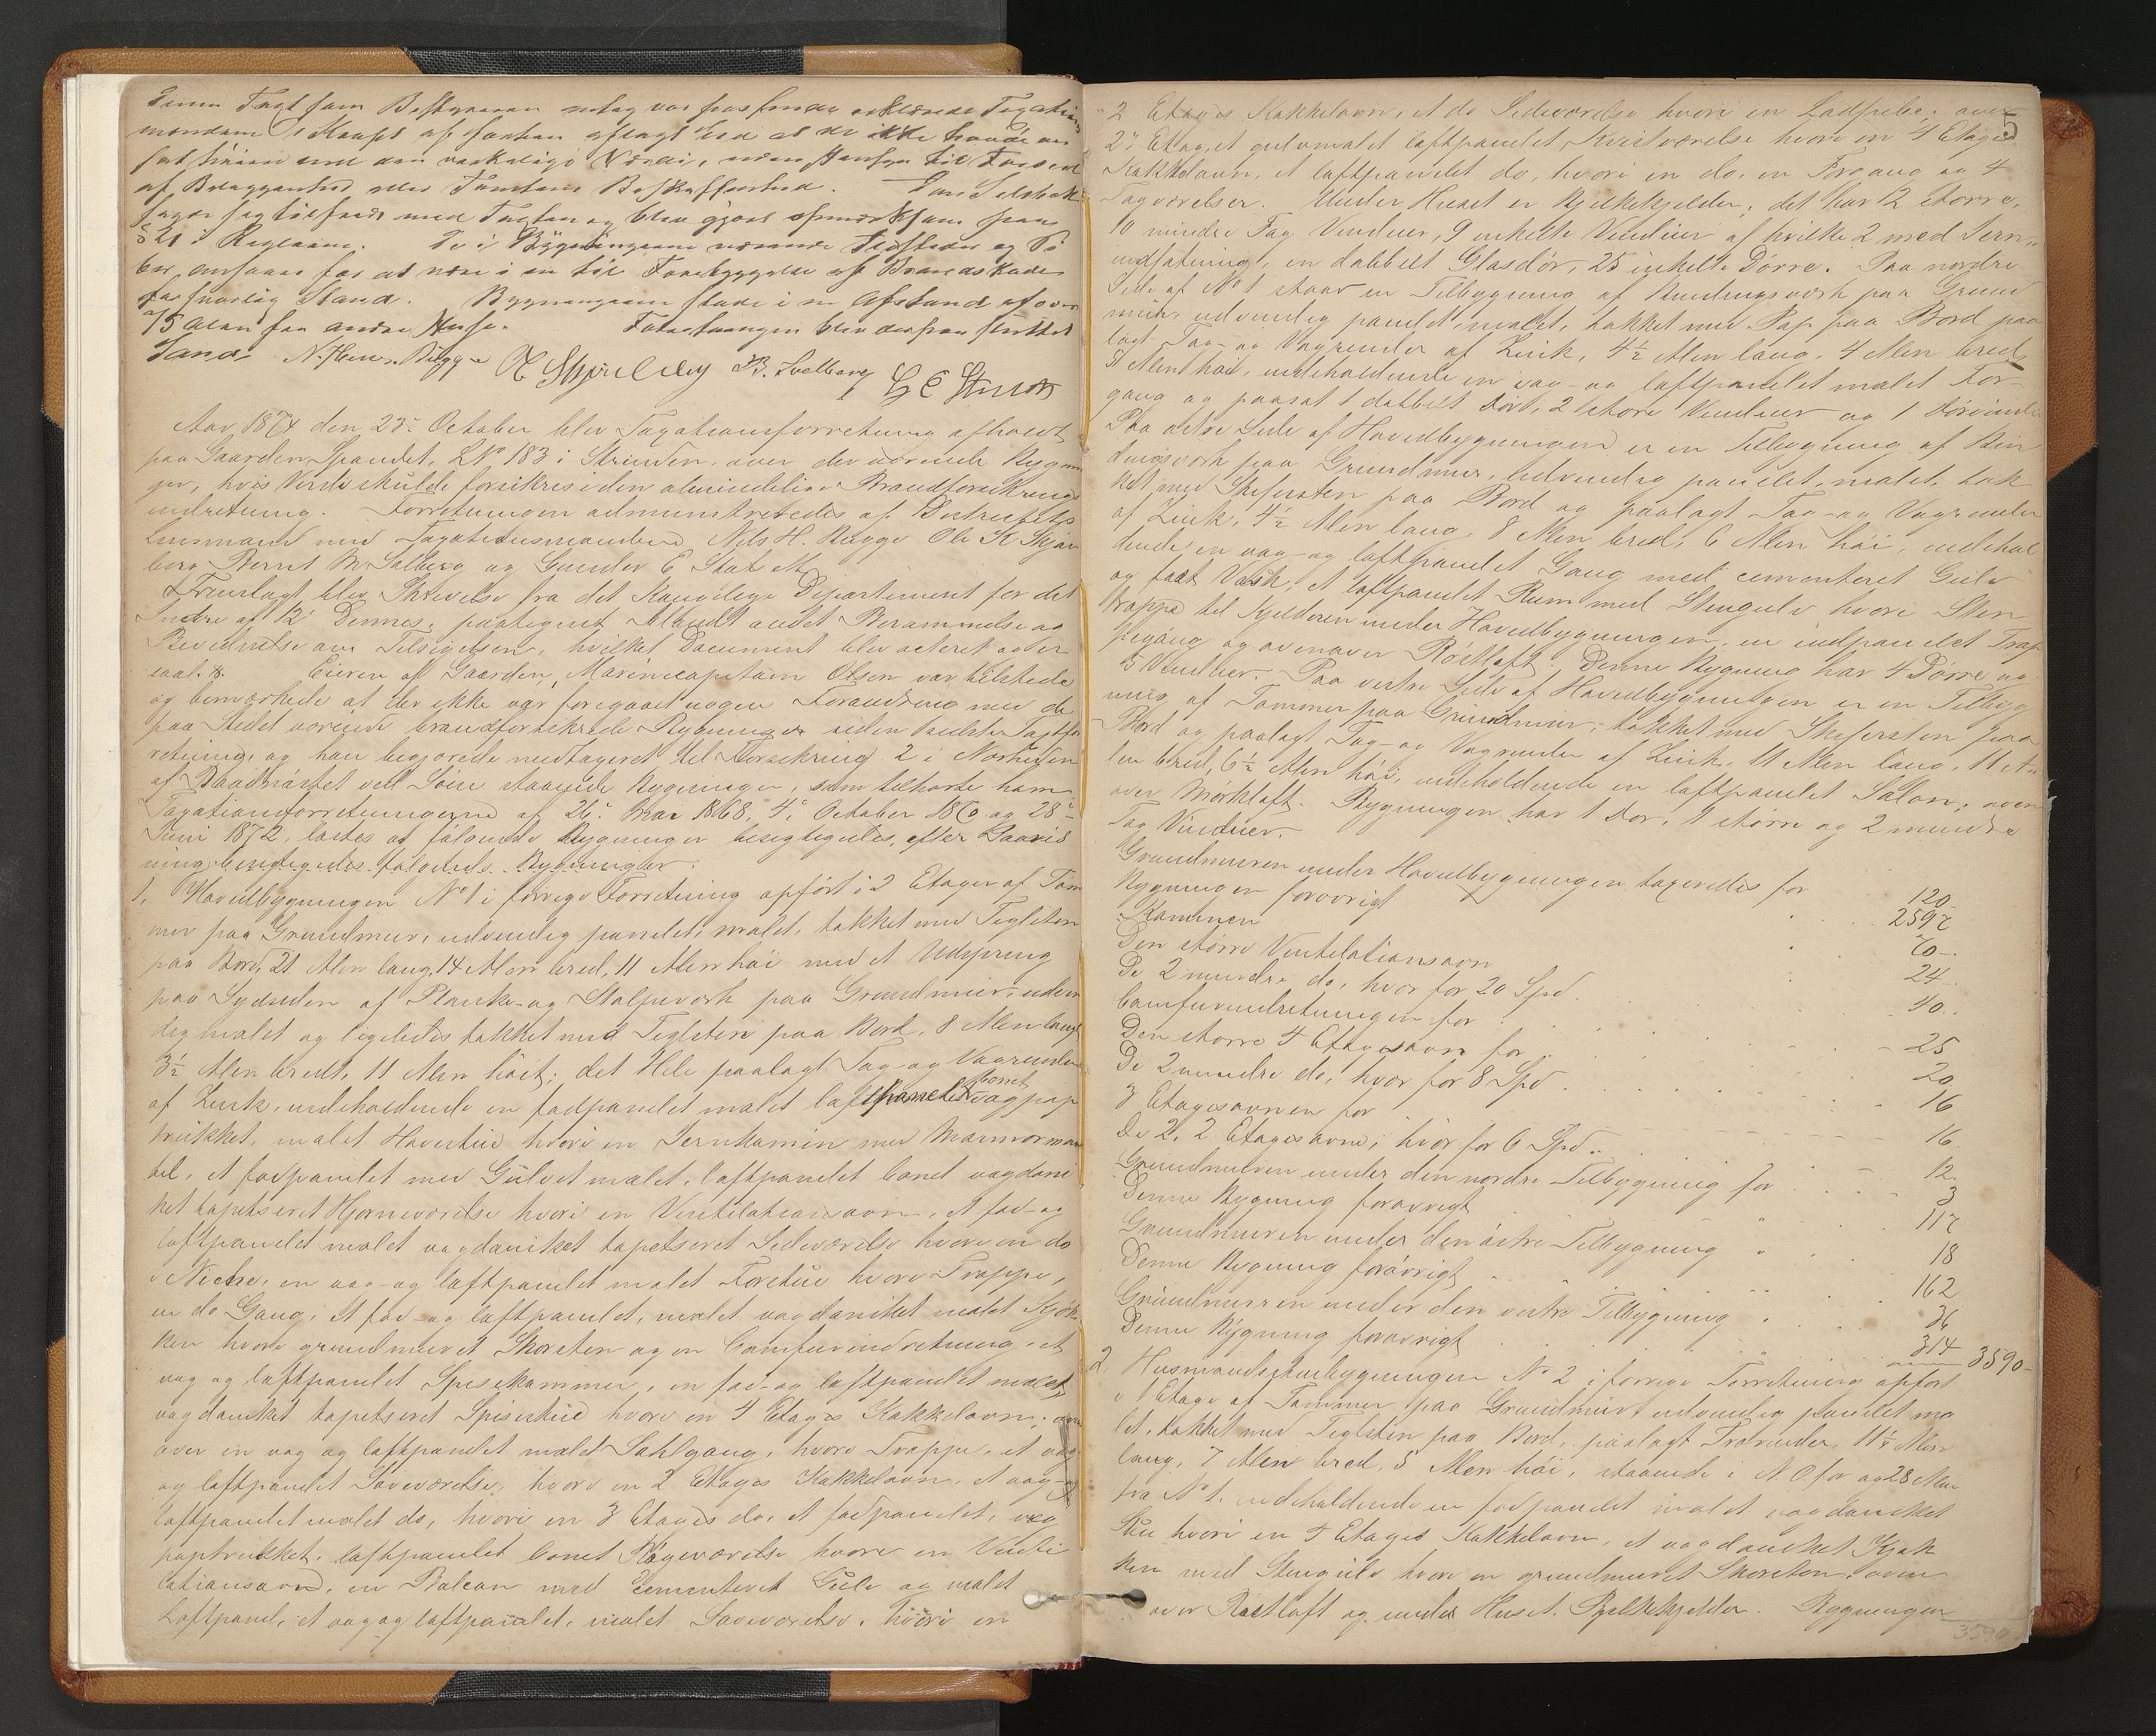 denne Taxt som Bestyreren
mændene
af Beliggenhed eller Tomtens Beskaffenhed.
sagde sig tilfreds med Taxten og blev gjort opmærksom paa
§ 21 i Reglerne. De i Bygningerne værende Ildsteder og Pi
ber ansaaes for at være i en til Forebyggelse af Brandskade
forsvarlig Stand. Bygningerne stode i en Afstand af over
75 Alen fra andre Huse. Forretningen blev derpaa sluttet
N. Henr. Bugge O Skjælberg B. Salberg G E Stuth
Aar 1874 den 23de October blev Taxationsforretning afholdt
paa Gaarden Spandet, LNo 183 i Strinden, over der værende Bygnin
ger, hvis Værdi skulde forsikres i den almindelige Brandforsikrings
indretning. Forretningen administreredes af Districtets
Lensmand med Taxationsmændene Nels H. Bugge Ole K Skjæl
berg Bernt M Salberg og Gunder E Stut
Fremlagt blev Skrivelse fra det Kongelige Departement for det
Indre af 12 Dennes, paategnet blandt andet Berammelse og
Bevidnelse om Tilsigelsen, hvilket Document blev acteret og er
saal. Eieren af Gaarden, Marinecapitain Olsen var tilstede
og bemærkede at der ikke var foregaaet nogen Forandring med de
paa Stedet værende brandforsikrede Bygninger siden sidste Taxtfor
retning, og han begjærede medtaget til Forsikring 2 i Nærheden
af Baadnøstet ved Søen staaende Bygninger, som tilhørte ham.
Taxationsforretningerne af 26de Mai 1868, 4de October 1869 og 28de
Juni 1872, læstes og følgende Bygninger besigtigedes, efter Laavis
ning besigtigedes følgende Bygninger:
1. Hovedbygningen No 1 i forrige Forretning opført i 2 Etager af Tøm
mer paa Grundmur, udvendig panelet, malet, tækket med Teglsten
paa Bord, 21 Alen lang, 14 Alen bred, 11 Alen høi med et Udspring
paa Sydsiden af Planke- og Stolpeverk paa Grundmur, udven
dig malet og ligeledes tækket med Teglsten paa Bord, 8 Alen langt
3½ Alen bredt, 11 Alen høit; det Hele paalagt Tag- og Vagrender
af Zink, indeholdende en fodpanelet malet loftpanelet bonet vægpap
trukket, malet Havestue hvori en Jernkamin med Marmorman
tel, et fodpanelet med Gulvet malet, loftpanelet bonet vægdani
ket tapetseret Hjørneværelse hvori en Ventilationsovn, et fod- og
loftpanelet malet vægdaniket tapetseret Sideværelse hvori en do
i Niche, en væg- og loftpanelet malet Forstue hvori Trappe,
en do Gang, et fod- og loftpanelet, malet vægdaniket malet Kjøk
ken hvori grundmuret Skorsten og en Comfurindretning, et
væg og loftpanelet Spisekammer, en fod- og loftpanelet malet,
vægdaniket tapetseret Spisestue hvori en 4 Etages Kakkelovn; oven
over en væg og loftpanelet malet Sahlgang, hvori Trappe, et væg
og loftpanelet Soveværelse, hvori en 2 Etages Kakkelovn, et væg- og
loftpanelet malet do, hvori en 3 Etages do, et fodpanelet, væg
paptrukket, loftpanelet bonet Røgeværelse hvori en Venti
lationsovn, en Balcon med cementeret Gulv og malet
Loftpanel, et væg og loftpanelet, malet Soveværelse, hvori en
5
2 Etages Kakkelovn, et do Sideværelse hvori en Ladspibe; over
2den Etage, et gulvmalet loftpanelet Kvistværelse hvori en 4 Etages
Kakkelovn, et loftpanelet do, hvori en do, en Forgang og 4
Tagværelser. Under Huset er Bjelkekjelder; det har 12 større,
10 mindre Fag Vinduer, 9 enkelte Vinduer af hvilke 2 med Jern
indfatning, en dobbelt Glasdør, 25 enkelte Dørre. Paa nordre
Side af No 1 staar en Tilbygning af Bindingsverk paa Grund
mur, udvendig panelet, malet, tækket med Pap paa Bord paa
lagt Tag- og Vagrender af Zink, 4½ Alen lang, 4 Alen bred,
5 Alen høi, indeholdende en væg- og loftpanelet malet For
gang og paasat 1 dobbelt Dør, 2 større Vinduer og 1 Dørvindu
Paa østre Side af Hovedbygningen er en Tilbygning af Bin
dingsverk paa Grundmur, udvendig panelet, malet, tæk
ket med Skifersten paa Bord og paalagt Tag- og Vagrender
af Zink, 4½ Alen lang, 8 Alen bred, 6 Alen høi, indehol
dende en væg- og loftpanelet Gang med cementeret Gulv
og fast Vask, et loftpanelet Rum med Stengulv hvori Sten
trappe til Kjelderen under Hovedbygningen, en indpanelet Trap
pegang og ovenover Røstloft. Denne Bygning har 4 Dørre og
5 Vinduer. Paa vestre Side af Hovedbygningen er en Tilbyg
ning af Tømmer paa Grundmur, tækket med Skifersten paa
Bord og paalagt Tag- og Vagrender af Zink, 11 Alen lang, 11 A
len bred, 6½ Alen høi, indeholdende en loftpanelet Salon; oven
over Mørkloft. Bygningen har 1 Dør, 11 større og 2 mindre
Fag Vinduer.
Grundmuren under Hovedbygningen taxeredes for 120
Bygningen forøvrigt 2592
Kaminen 70
Den større Ventilationsovn 24
De 2 mindre do, hver for 20 Spd. 40
Comfurindretningen for
Den større 4 Etagesovn for 25
De 2 mindre do, hver for 8 Spd. 20
3 Etagesovnen for 16
De 2, 2 Etagesovne, hver for 6 Spd. 16
Grundmuren under den nordre Tilbygning for 12
Denne Bygning forøvrigt 3
Grundmuren under den østre Tilbygning 117
Denne Bygning forøvrigt 18
Grundmuren under den vestre Tilbygning 162
Denne Bygning forøvrigt 36
314 3590
2. Husmandsstuebygningen No 2 i forrige Forretning opført
i 1 Etage af Tømmer paa Grundmur, udvendig panelet ma
let, tækket med Teglsten paa Bord, paalagt Trærender, 11½ Alen
lang, 7 Alen bred, 5 Alen høi, staaende i N O for og 28 Alen
fra No 1, indeholdende en fodpanelet malet vægdaniket
Stue hvori en 4 Etages Kakkelovn, et vægdaniket Kjøk
ken med Stengulv hvori en grundmuret Skorsten, oven
over Røstloft og under Huset Bjelkekjelder. Bygningen
3590